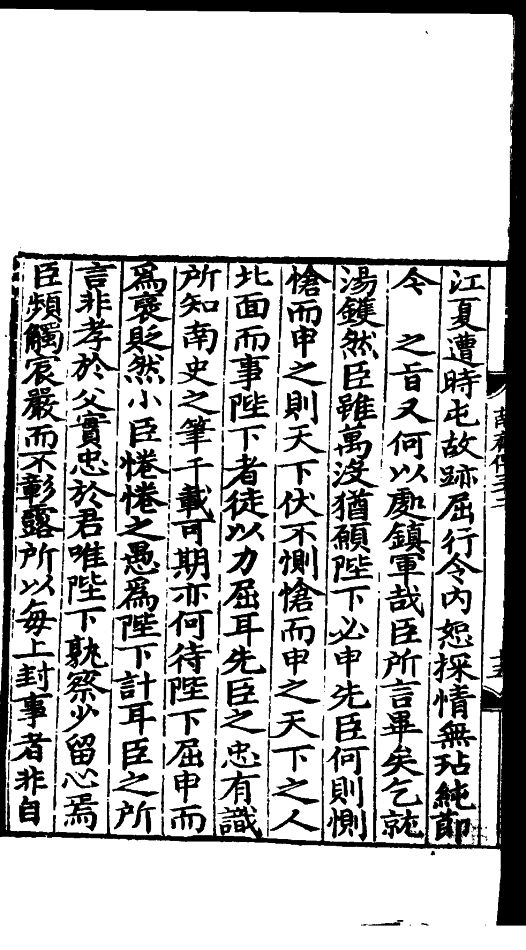 江夏遭時屯故跡屈行令內恕探情無玷純節
今　之旨又何以處鎮軍哉臣所言畢矣乞就
湯鑊然臣雖萬沒猶願陛下必申先臣何則惻
愴而申之則天下伏不惻愴而申之天下之人
北面而事陛下者徒以力屈耳先臣之忠有識
所知南史之筆千載可期亦何待陛下屈申而
爲襃貶然小臣惓惓之愚爲陛下計耳臣之所
言非孝於父實忠於君唯陛下孰察少留心焉
臣頻觸宸嚴而不彰露所以每上封事者非自